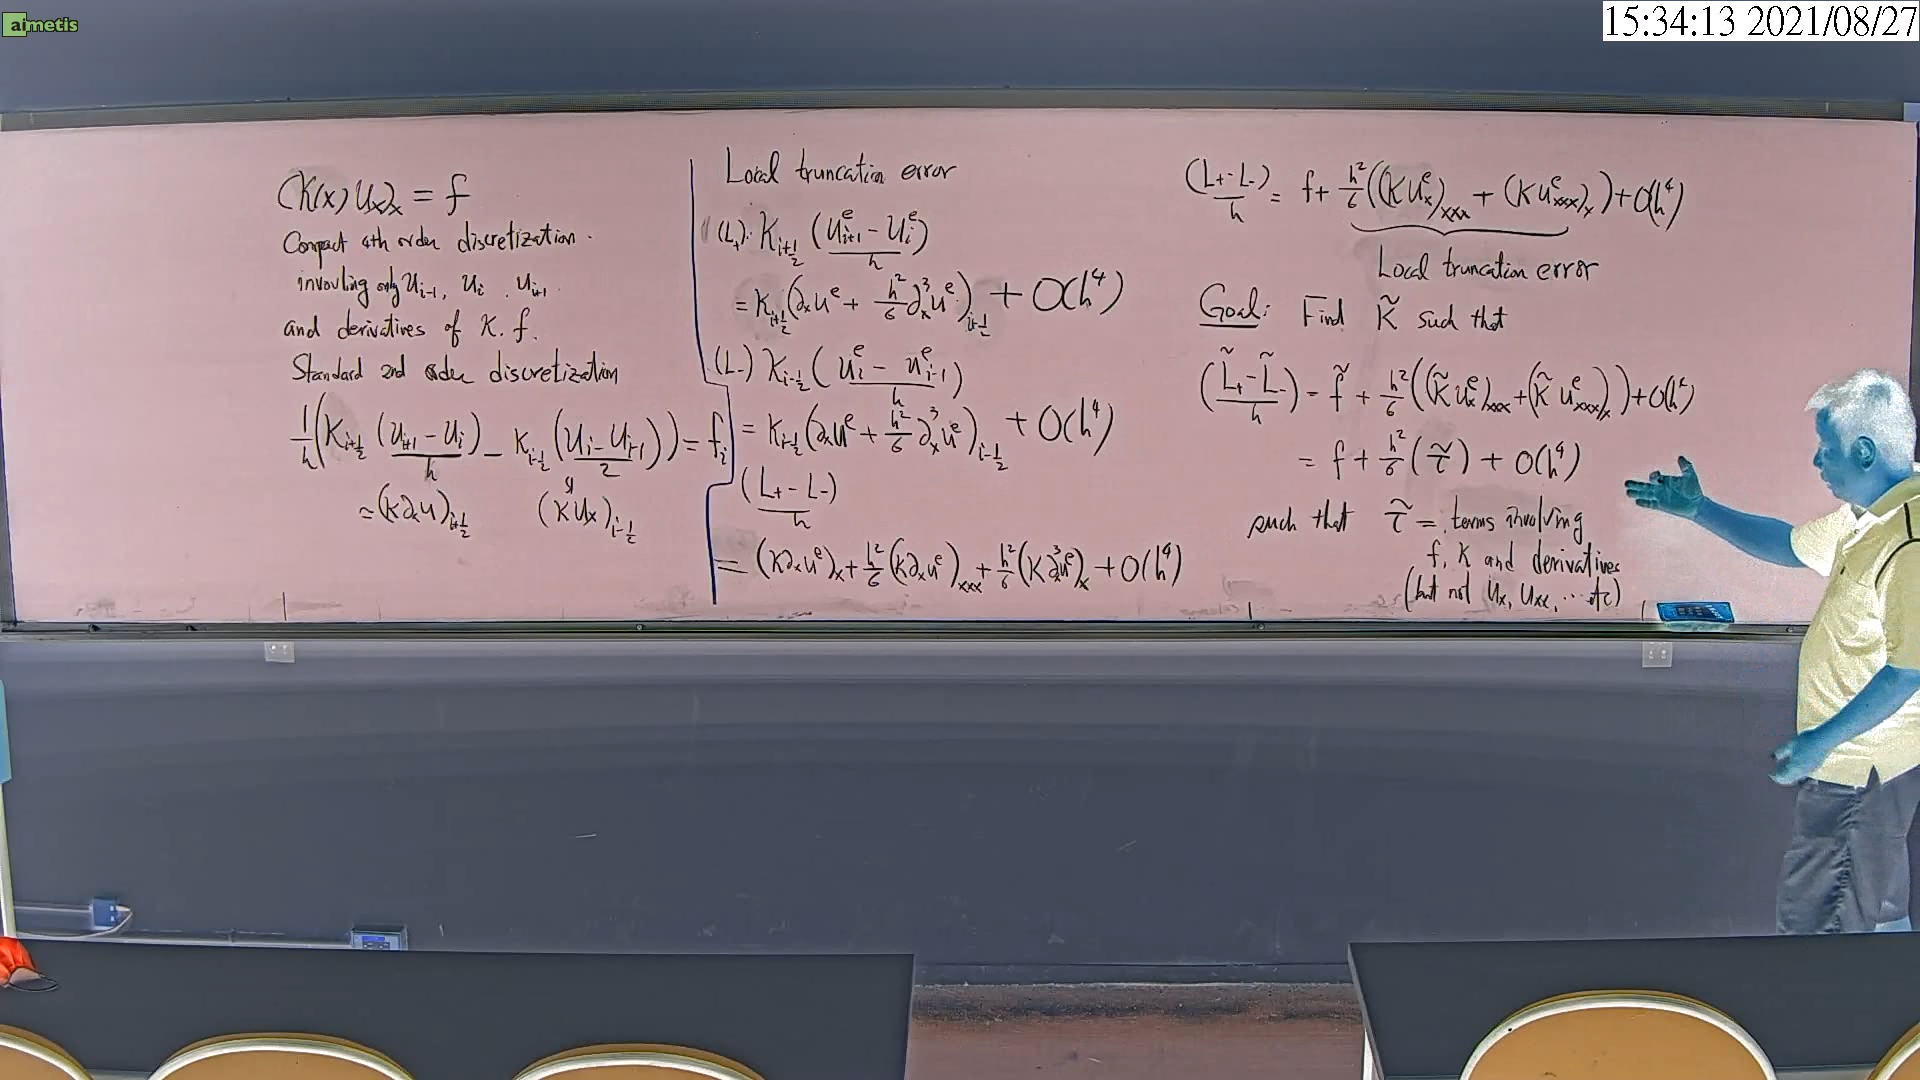 aimetis
15:34:13 2021/08/27
(K(x) Ux)x = f
Compact 4th order discretization.
involving only Ui-1, Ui, Ui+1
and derivatives of K, f.
Standard 2nd order discretization
1/h (K_{i+1/2} (U_{i+1} - U_i)/h - K_{i-1/2} (U_i - U_{i-1})/2) = f_i
≈ (K∂xU)_{i+1/2} (KUx)_{i-1/2}
Local truncation error
(L+): K_{i+1/2} (U^e_{i+1} - U^e_i)/h
= K_{i+1/2} (∂x u^e + h²/6 ∂³x u^e)_{i+1/2} + O(h⁴)
(L-) K_{i-1/2} (U^e_i - U^e_{i-1})/h
= K_{i-1/2} (∂x u^e + h²/6 ∂³x u^e)_{i-1/2} + O(h⁴)
(L+ - L-)/h
= (K∂x u^e)x + h²/6 (K∂x u^e)xxx + h²/6 (K∂³x u^e)x + O(h⁴)
(L+ - L-)/h = f + h²/6 ((K U^e_x)xxx + (K U^e_xxx)x) + O(h⁴)
Local truncation error
Goal: Find K̃ such that
(L̃+ - L̃-)/h = f̃ + h²/6 ((K̃ U^e_x)xxx + (K̃ U^e_xxx)x) + O(h⁴)
= f + h²/6 (τ̃) + O(h⁴)
such that τ̃ = terms involving
f, K and derivatives
(but not Ux, Uxx, ... etc)